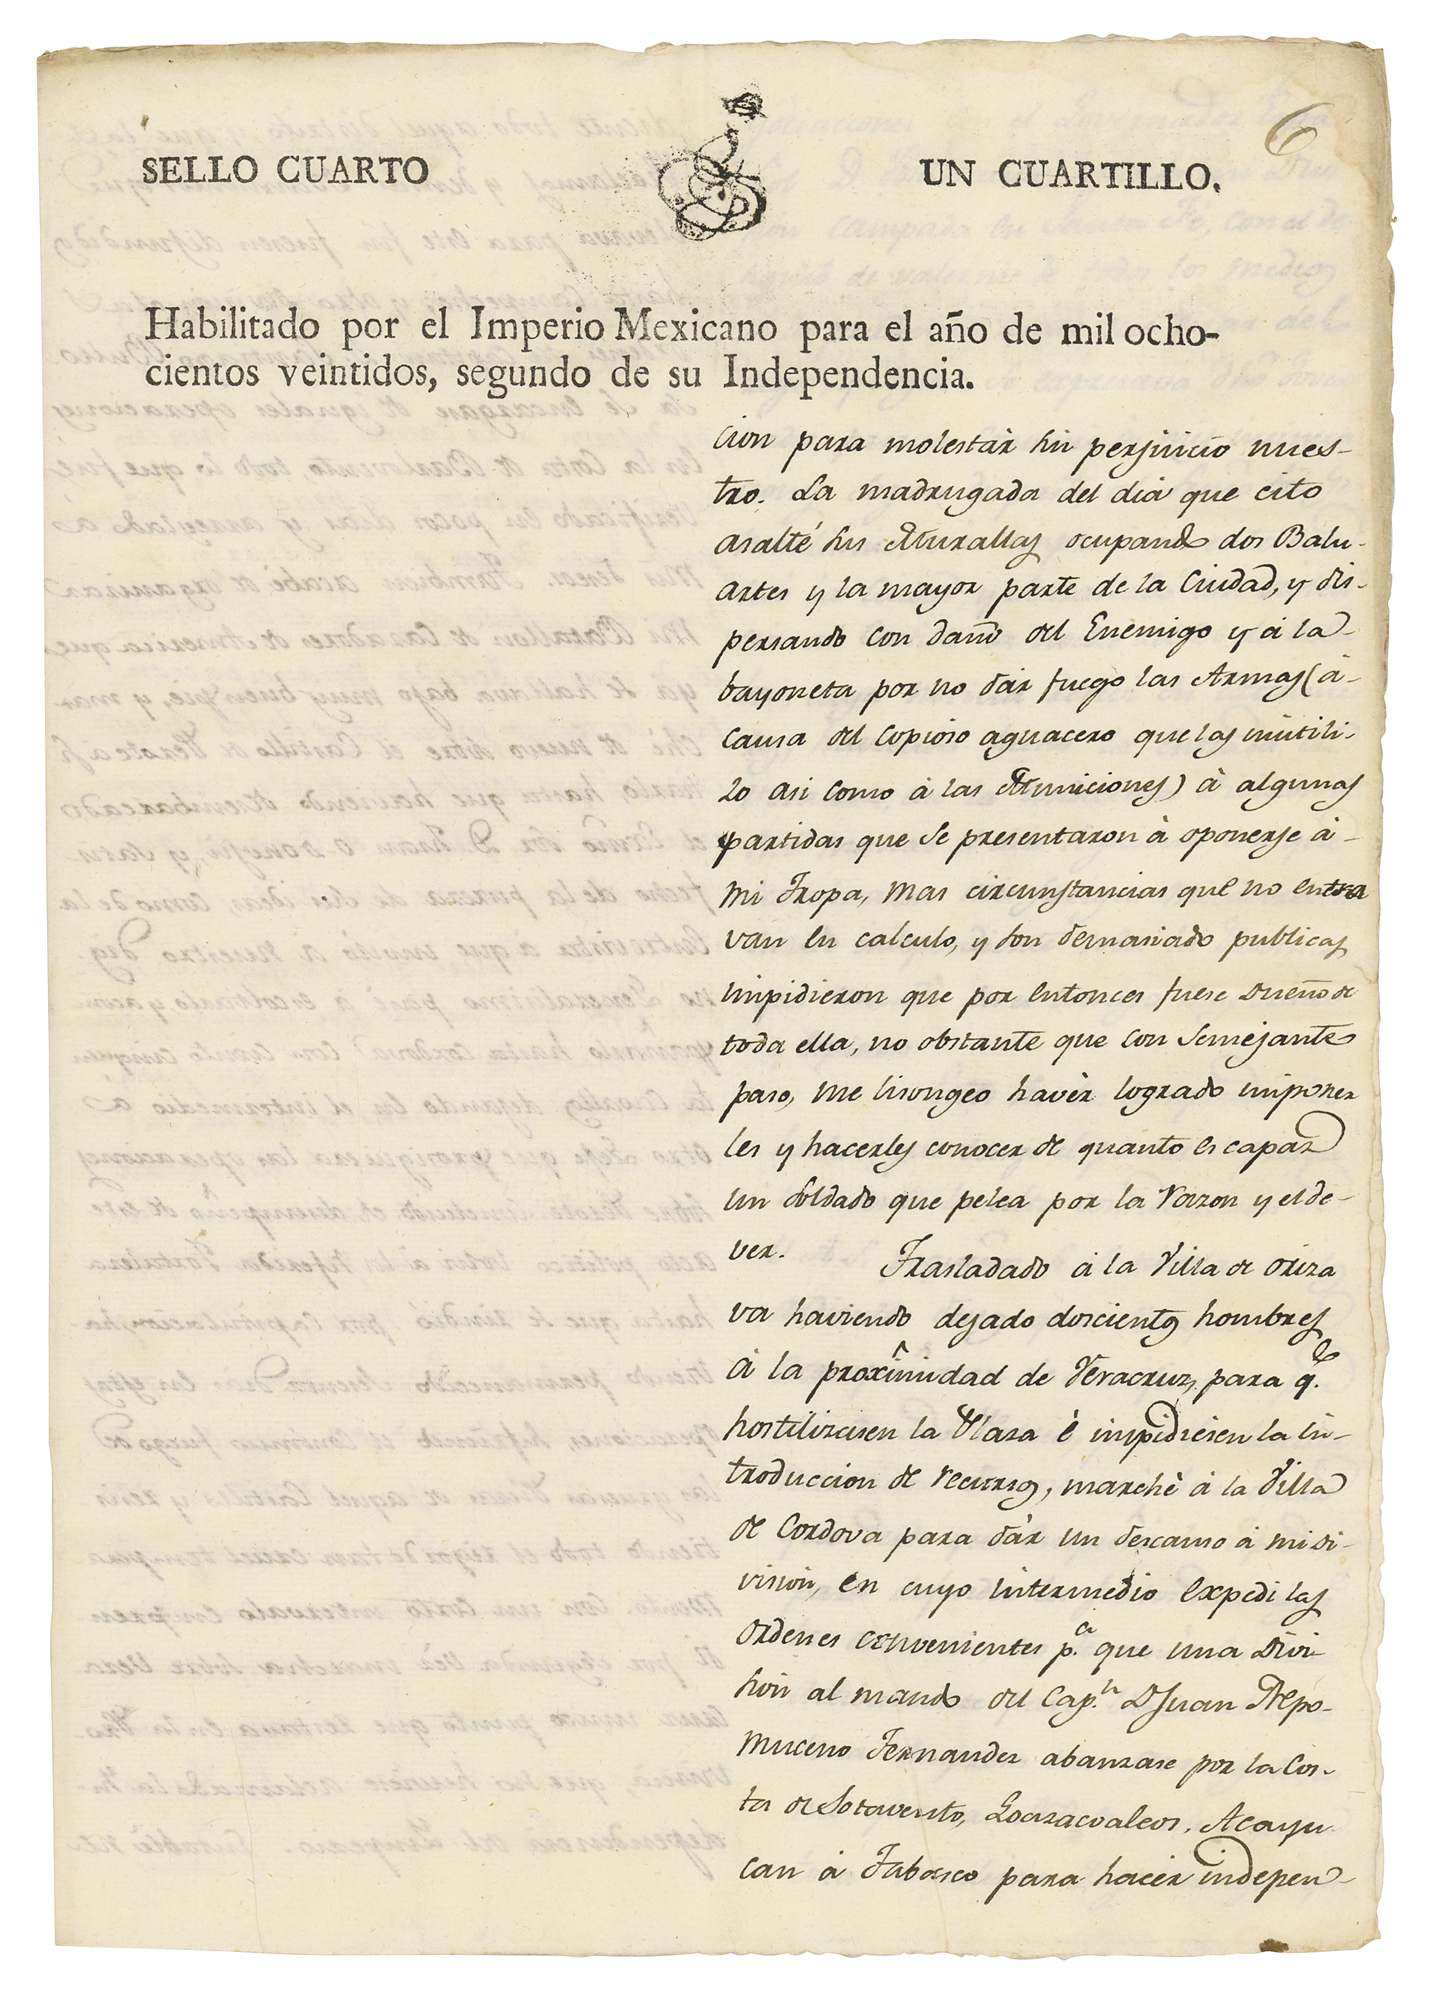 6
SELLO CUARTO
UN CUARTILLO.
Habilitado por el Imperio Mexicano para el año de mil ocho-
cientos veintidos, segundo de su Independencia.
cion para molestàr sin perjuicio nues-
tro. La madrugada del dia que cito
asalté sus Murallas ocupando dos Balu-
artes y la mayor parte de la Ciudad, y dis-
persando con daño del Enemigo y á la
bayoneta por no dàr fuego las Armas (á
causa del copioso aguacero que las inutili-
zo asi como á las Municiones) à algunas
partidas que se presentaron à oponerse á
mi Tropa, mas circunstancias que no entra
van en calculo, y son demasiado publicas
impidieron que por entonces fuese Dueño de
toda ella, no obstante que con semejante
paso, me lisongeo havèr logrado imponer
les y hacerles conocer de quanto es capaz
un Soldado que pelea por la razon y el de-
ver. Trasladado á la Villa de Oriza
va haviendo dejado doscientos hombres
á la proximidad de Veracruz, para q.e
hostilizasen la Plaza è impidiesen la in-
troduccion de recursos, marchè á la Villa
de Cordova para dàr un descanso á mi di-
vision, en cuyo intermedio expedi las
ordenes convenientes p.a que una Divi
sion al mando del Cap.n D Juan Nepo-
muceno Fernandez abanzase por la Cos-
ta de Sotavento, Goazacoalcos, Acayu
can á Tabasco para hacèr indepen-